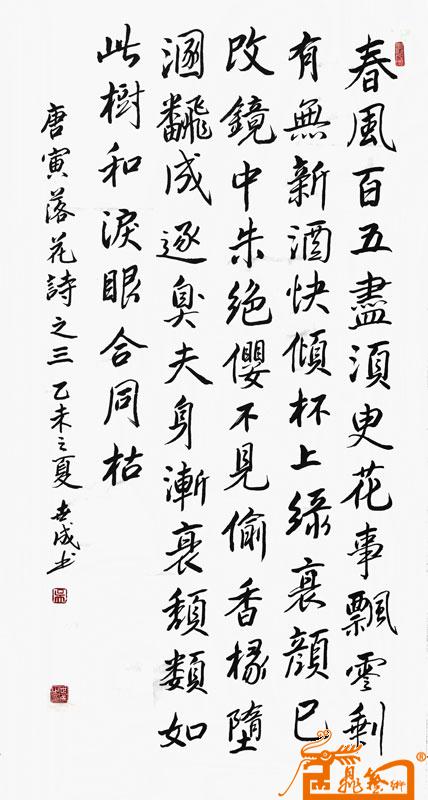 春風百五盡須臾花事飄零剩
有無新酒快傾杯上綠衰顏已
改鏡中朱絕纓不見偷香椽墮
溷飜成逐臭夫身漸衰頹類如
此樹和淚眼合同枯
唐寅落花詩之三 乙未之夏 世成书